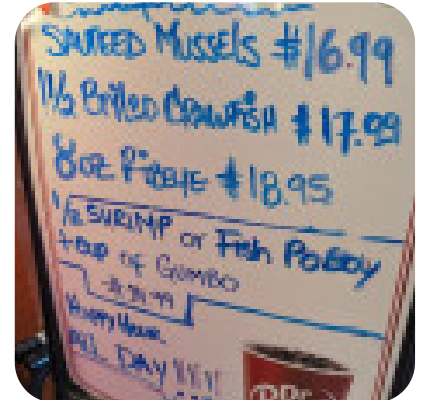 SAUTEED MUSSELS $16.99
1 1/2 Boiled CRAWFISH $17.99
8oz Ribeye $18.95
1/2 SHRIMP or Fish PoBoy
+ CUP of GUMBO
Happy Hour
ALL DAY !!!!